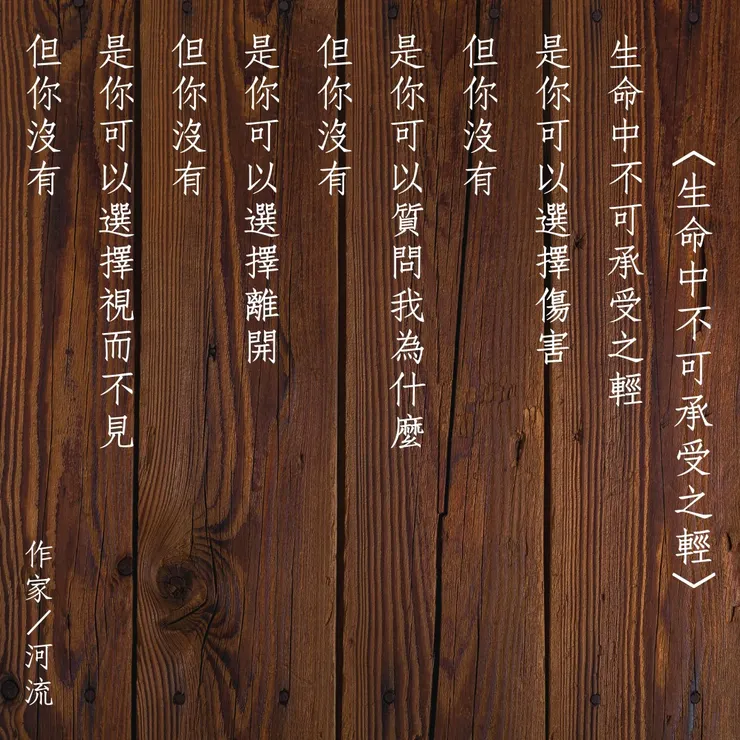 〈生命中不可承受之輕〉
生命中不可承受之輕
是你可以選擇傷害
但你沒有
是你可以質問我為什麼
但你沒有
是你可以選擇離開
但你沒有
是你可以選擇視而不見
但你沒有
作家／河流